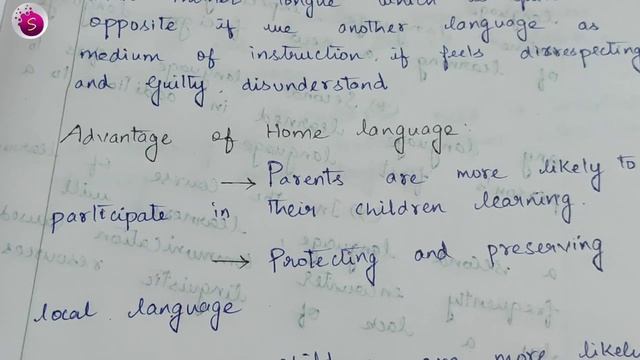 S
opposite if we another language as
medium of instruction. if feels disrespecting
and guilty. disunderstand
Advantage of Home language:
→ Parents are more likely to
participate in their children learning.
→ Protecting and preserving
local language
are more likely